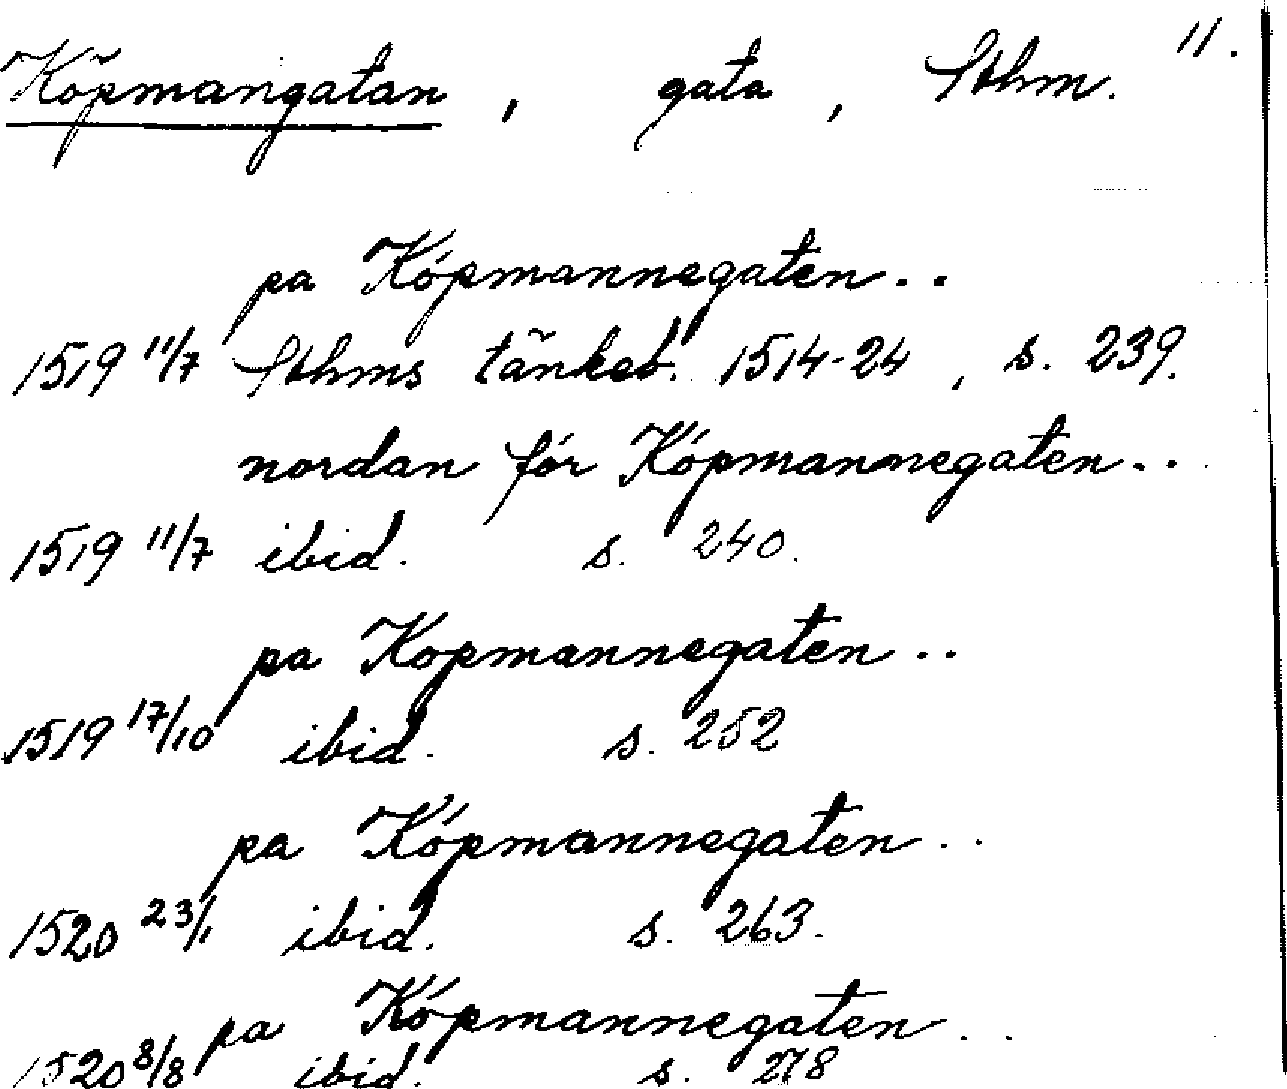 Köpmangatan, gata, Sthm. 11.
pa Kópmannegaten..
1519 11/7 Sthms tänkeb. 1514-24, s. 239.
nordan fór Kópmannegaten..
1519 11/7 ibid. s. 240.
pa Kopmannegaten..
1519 17/10 ibid. s. 252
pa Kópmannegaten..
1520 23/1 ibid. s. 263.
pa Kópmannegaten..
1520 8/8 ibid. s. 278